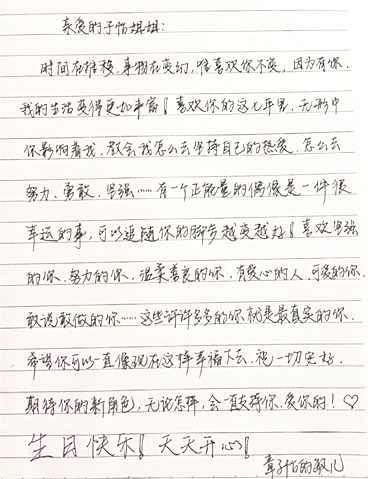 亲爱的子怡姐姐:
时间在推移,事物在变幻,唯喜欢你不变,因为有你,
我的生活变得更加丰富!喜欢你的这七年里,无形中
你影响着我,教会我怎么去坚持自己的热爱,怎么去
努力、勇敢、坚强……有一个正能量的偶像是一件很
幸运的事,可以追随你的脚步越变越好!喜欢坚强
的你、努力的你、温柔善良的你,有爱心的人、可爱的你、
敢说敢做的你……这些许许多多的你就是最真实的你,
希望你可以一直像现在这样幸福下去,祝一切安好,
期待你的新角色,无论怎样,会一直支持你、爱你的!♡
生日快乐!天天开心!
章子怡的